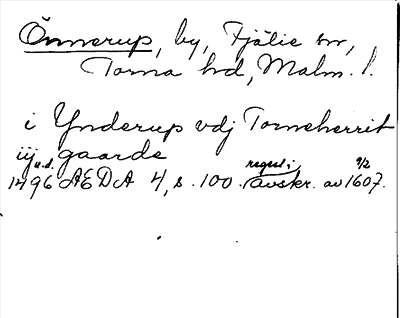 Önnerup, by, Fjälie sn,
Torna hd, Malm. l.
i Ynderup vdj Torneherrit
iij gaarde
1496 u.d. AEDA 4, s. 100. regul i avskr. av 1607. 9/2